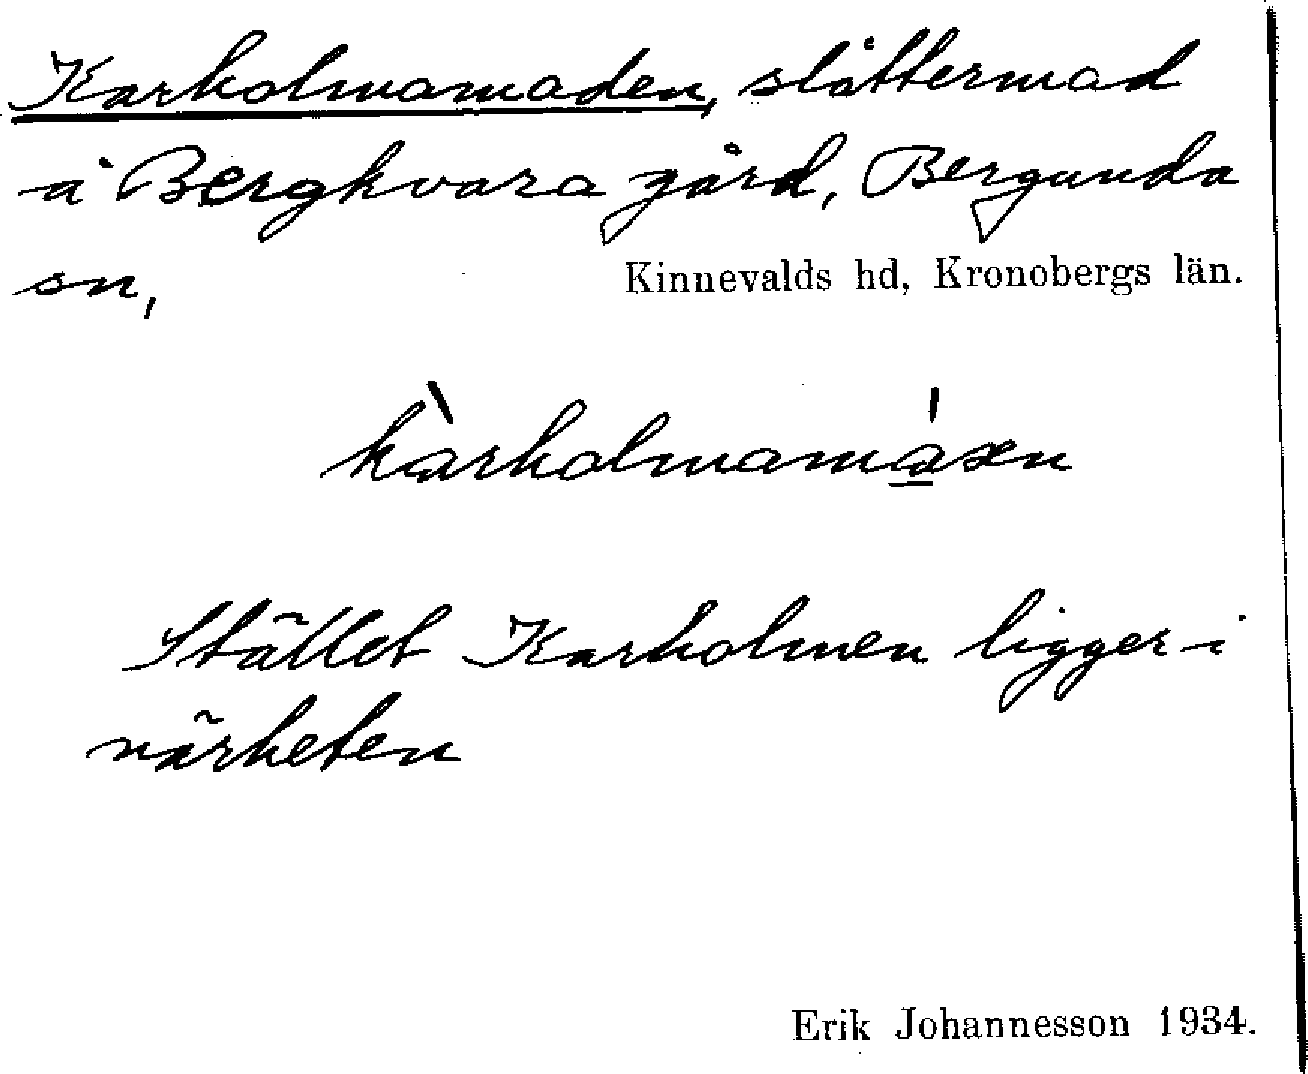 Karholmamaden, slåttermad
å Bergkvara gård, Bergunda
sn, Kinnevalds hd, Kronobergs län.
kàrholmamáxn
Stället Karholmen ligger i
närheten
Erik Johannesson 1934.